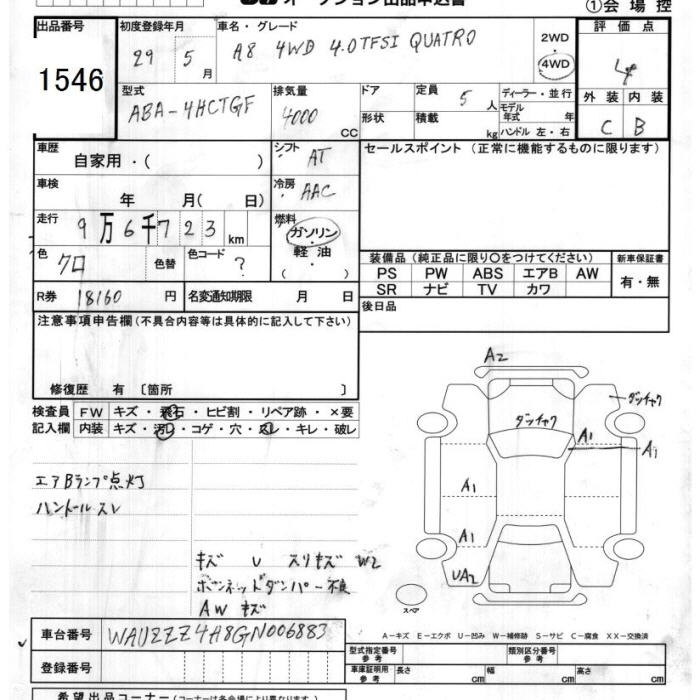 オークション出品申込書
①会場控
出品番号
1546
初度登録年月
29 5 月
車名・グレード
A8 4WD 4.0TFSI QUATRO
2WD
4WD
評価点
4
外装 内装
C B
型式
ABA-4HCTGF
排気量
4000 CC
ドア
形状
定員 5 人
積載 kg
ディーラー・並行
モデル年式 年
ハンドル 左・右
車歴
自家用・( )
シフト AT
車検
年 月( 日)
冷房 AAC
走行
9万6千723 km
燃料
ガソリン
・
軽油
色 クロ
色替
色コード ?
R券 18160 円
名変通知期限 月 日
セールスポイント(正常に機能するものに限ります)
装備品(純正品に限り○をつけてください)
新車保証書
PS PW ABS エアB AW
SR ナビ TV カワ
有・無
後日品
注意事項申告欄(不具合内容等は具体的に記入して下さい)
修復歴 有 〔箇所 〕
検査員 FW キズ・飛石・ヒビ割・リペア跡・×要
記入欄 内装 キズ・汚レ・コゲ・穴・スレ・キレ・破レ
エアBランプ点灯
ハンドルスレ
キズ U スリキズ W2
ボンネットダンパー不良
AW キズ
A2
ダッチャク
ダッチャク
A1
A1
A1
A1
UA2
スペア
車台番号 WAUZZZ4H8GN006883
登録番号
A-キズ E-エクボ U-凹み W-補修跡 S-サビ C-腐食 XX-交換済
型式指定番号 参考
類別区分番号 参考
車庫証明用 参考 長さ cm 幅 cm 高さ cm
希望出品コーナー(コーナーは各会場により異なります)